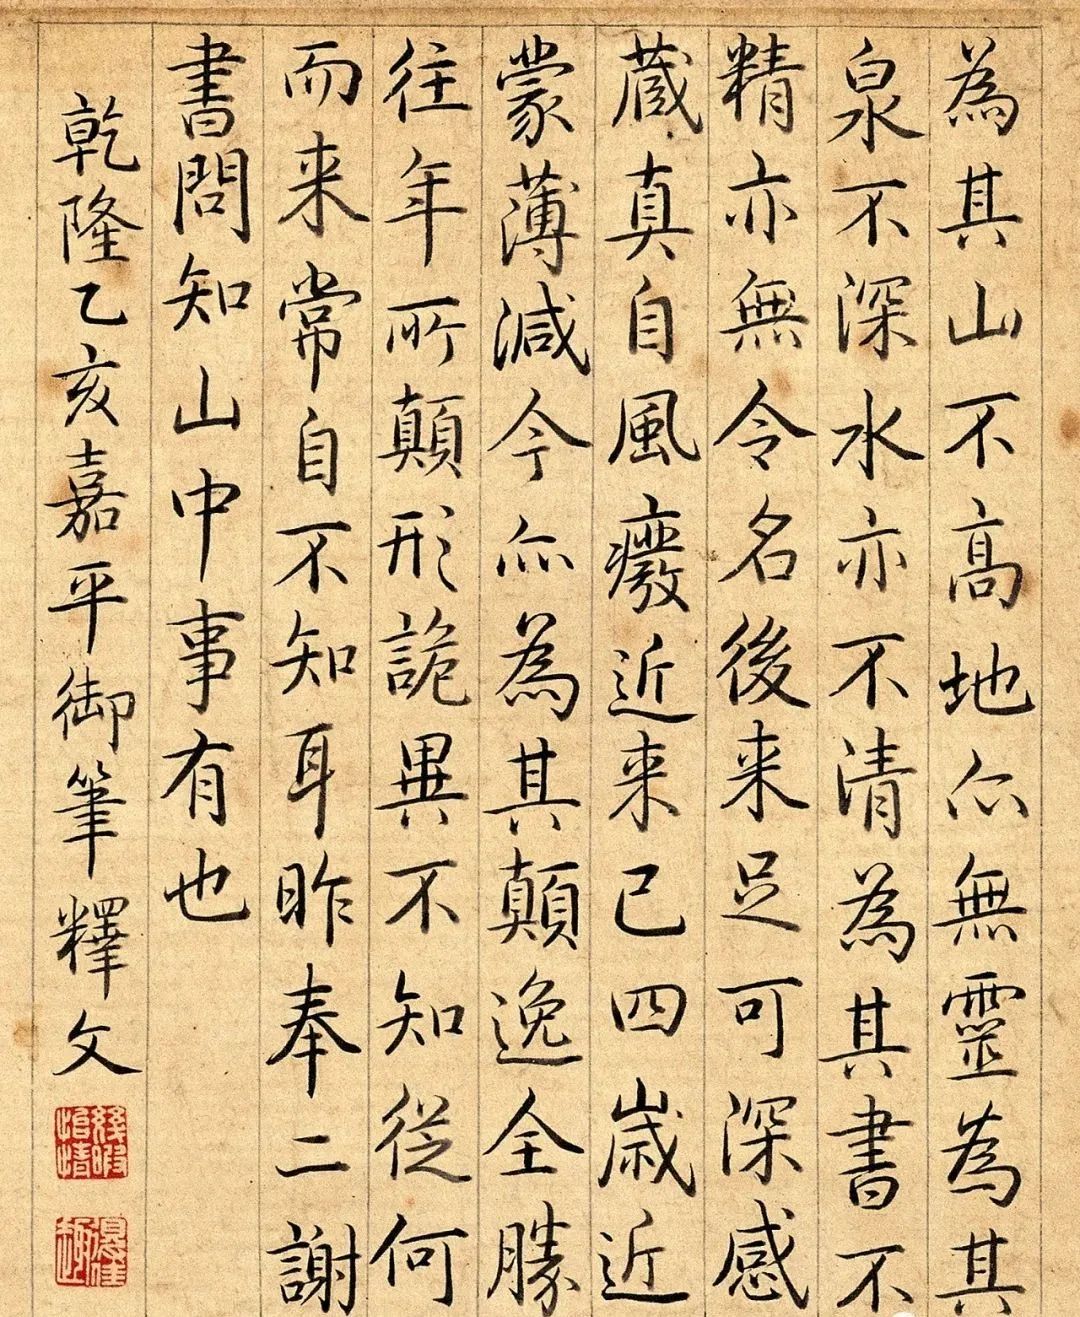 為其山不高地亦無靈為其
泉不深水亦不清為其書不
精亦無令名後来足可深感
蔵真自風癈近来已四歳近
蒙薄減今亦為其顛逸全勝
往年所顛形詭異不知從何
而来常自不知耳昨奉二謝
書問知山中事有也
乾隆乙亥嘉平御筆釋文
幾暇怡情
得佳趣